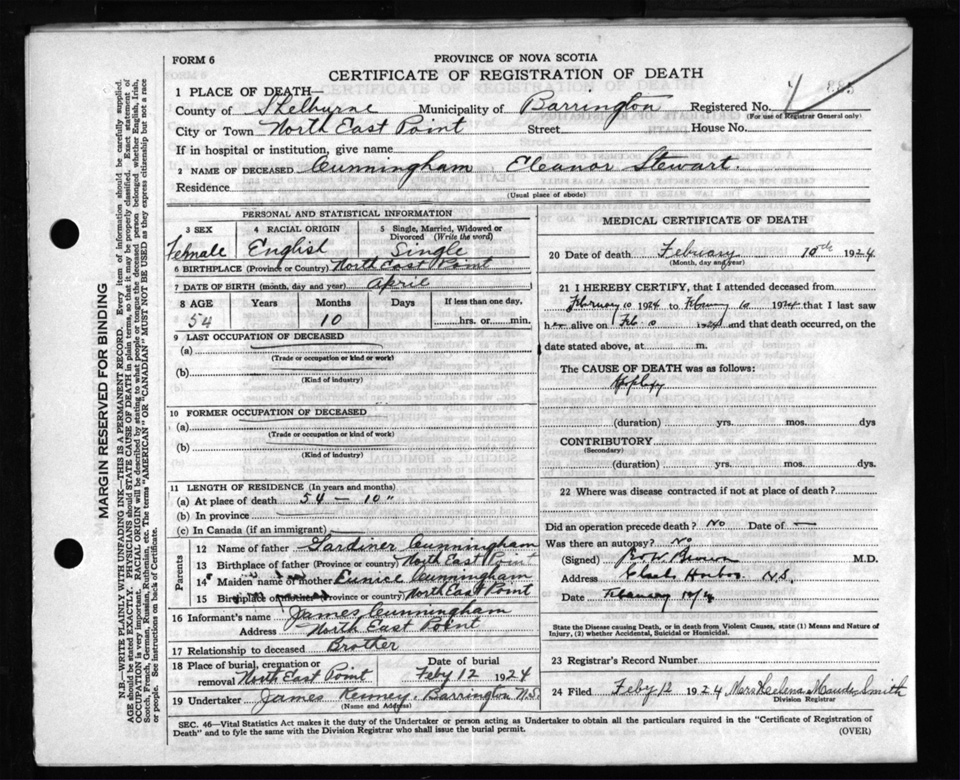 FORM 6
PROVINCE OF NOVA SCOTIA
CERTIFICATE OF REGISTRATION OF DEATH
1 PLACE OF DEATH—
County of Shelburne Municipality of Barrington Registered No. 4
(For use of Registrar General only)
City or Town North East Point Street House No.
If in hospital or institution, give name
2 NAME OF DECEASED Cunningham Eleanor Stewart.
Residence
(Usual place of abode)
PERSONAL AND STATISTICAL INFORMATION
3 SEX
Female
4 RACIAL ORIGIN
English
5 Single, Married, Widowed or Divorced (Write the word)
Single
6 BIRTHPLACE (Province or Country) North East Point
7 DATE OF BIRTH (month, day and year) April
8 AGE Years Months Days If less than one day,
54 10 hrs. or min.
9 LAST OCCUPATION OF DECEASED
(a)
(Trade or occupation or kind or work)
(b)
(Kind of industry)
10 FORMER OCCUPATION OF DECEASED
(a)
(Trade or occupation or kind of work)
(b)
(Kind of industry)
11 LENGTH OF RESIDENCE (In years and months)
(a) At place of death 54 — 10 "
(b) In province
(c) In Canada (if an immigrant)
Parents
12 Name of father Gardiner Cunningham
13 Birthplace of father (Province or country) North East Point
14 Maiden name of mother Eunice Cunningham
15 Birthplace of mother (Province or country) North East Point
16 Informant's name James Cunningham
Address North East Point
17 Relationship to deceased Brother
18 Place of burial, cremation or removal North East Point
Date of burial
Feby 12 1924
19 Undertaker James Kenney. Barrington N.S.
(Name and Address)
MEDICAL CERTIFICATE OF DEATH
20 Date of death February 10th 1924
(Month, day and year)
21 I HEREBY CERTIFY, that I attended deceased from
February 10 1924 to February 10 1924 that I last saw
her alive on Feb 10 1924 and that death occurred, on
date stated above, at m.
The CAUSE OF DEATH was as follows:
(duration) yrs. mos. dys
CONTRIBUTORY
(Secondary)
(duration) yrs. mos. dys.
22 Where was disease contracted if not at place of death?
Did an operation precede death? No Date of —
Was there an autopsy? No
(Signed) Brown M.D.
Address Harbor N.S.
Date February
State the Disease causing Death, or in death from Violent Causes, state (1) Means and Nature of
Injury, (2) whether Accidental, Suicidal or Homicidal.
23 Registrar's Record Number
24 Filed Feby 12 1924 Maude Smith
Division Registrar
SEC. 46—Vital Statistics Act makes it the duty of the Undertaker or person acting as Undertaker to obtain all the particulars required in the "Certificate of Registration of
Death" and to fyle the same with the Division Registrar who shall issue the burial permit.
(OVER)
MARGIN RESERVED FOR BINDING
N.B.—WRITE PLAINLY WITH UNFADING INK—THIS IS A PERMANENT RECORD. Every item of information should be carefully supplied.
AGE should be stated EXACTLY. PHYSICIANS should STATE CAUSE OF DEATH in plain terms, so that it may be properly classified. Exact statement of
OCCUPATION is very important. RACIAL ORIGIN will be described by stating to what people or tongue the deceased person belonged whether English, Irish,
Scotch, French, German, Russian, Ruthenian, etc. The terms "AMERICAN" or "CANADIAN" MUST NOT BE USED as they express citizenship but not a race
or people. See instructions on back of Certificate.